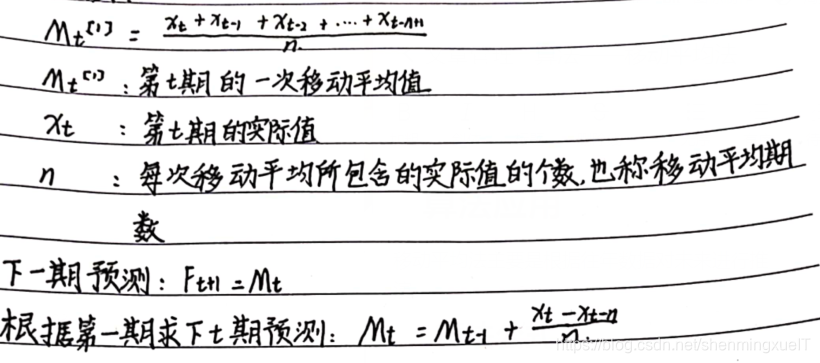 Mt[1] = (xt + xt-1 + xt-2 + ... + xt-n+1) / n
Mt[1] : 第t期的一次移动平均值
xt : 第t期的实际值
n : 每次移动平均所包含的实际值的个数,也称移动平均期
数
下一期预测: Ft+1 = Mt
根据第一期求下t期预测: Mt = Mt-1 + (xt - xt-n) / n
https://blog.csdn.net/shenmingxueIT